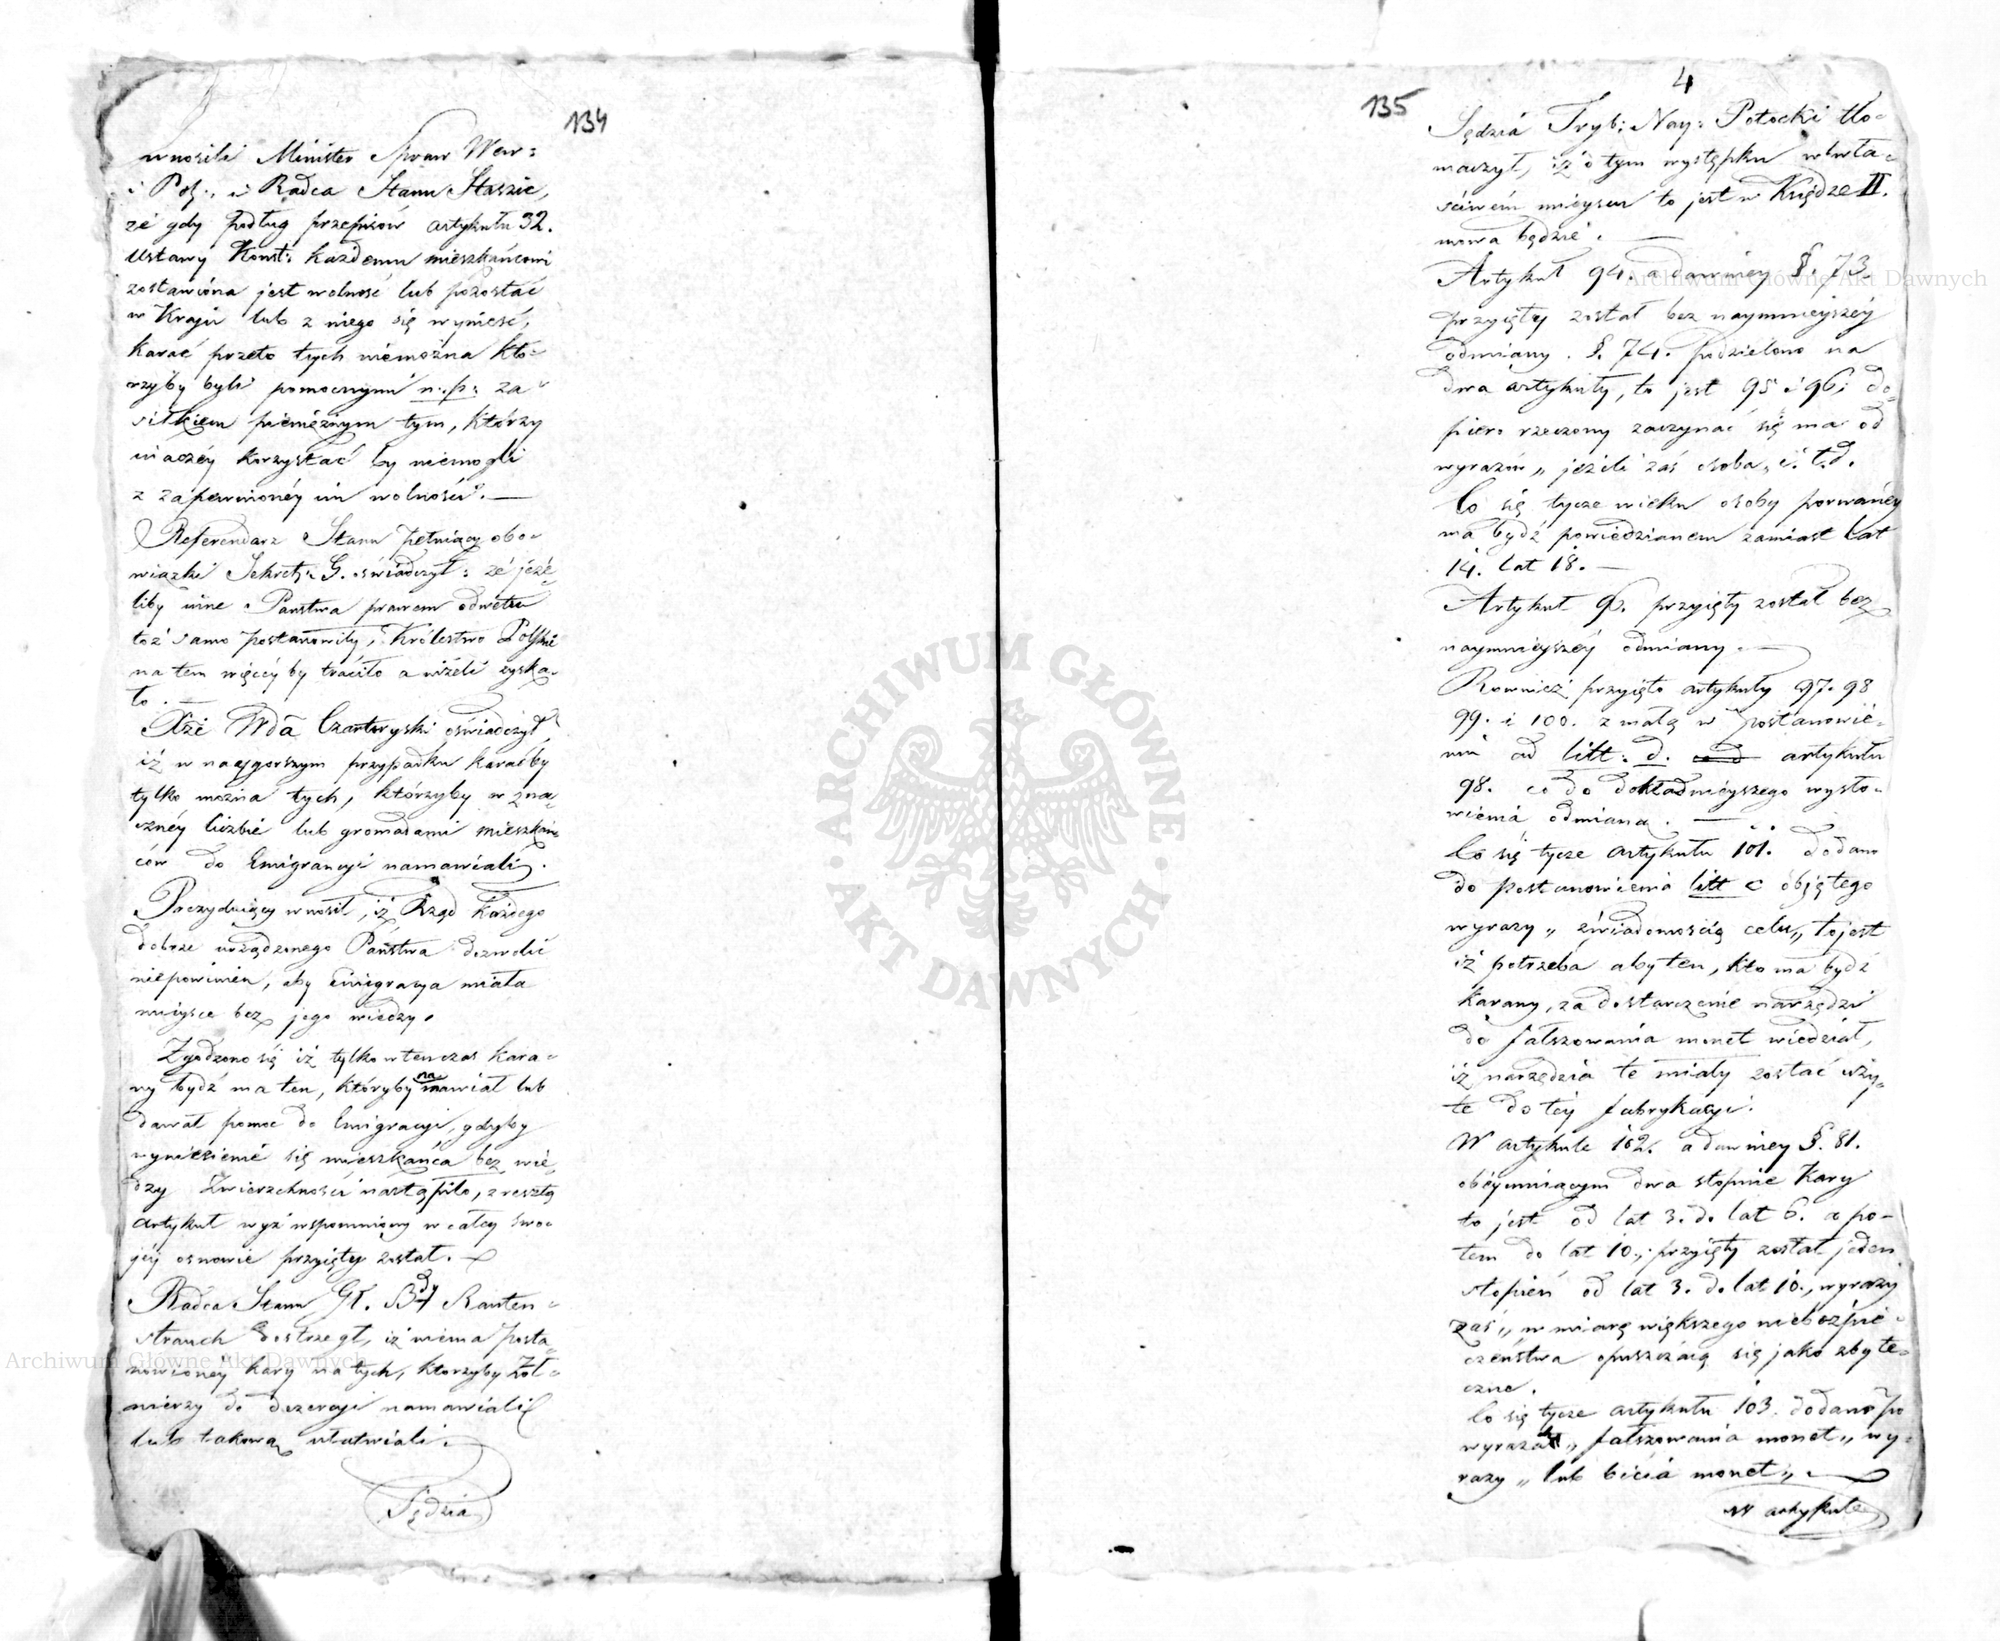 134
wnosili Minister Spraw Wew:
i Pol:, i Radca Stanu Staszic,
że gdy podług przepisów artykułu 32.
Ustawy Konst: każdemu mieszkańcowi
zostawiona jest wolność lub pozostać
w Kraju lub z niego się wynieść,
karać przeto tych niemożna kto-
rzyby byli pomocnymi n.p: za
siłkiem pieniężnym tym, którzy
inaczéy korzystać by niemogli
z zapewnionéy im wolności. —
Referendarz Stanu pełniący obo-
wiązki Sekret: G. oświadczył: że jeże-
liby inne Państwa prawem odwetu
toż samo postanowiły, Królestwo Polskie
na tem więcéy by traciło a niżeli zyska-
ło. —
Xże Wda Czartoryski oświadczył,
iż w naygorszym przypadku karaćby
tylko można tych, którzyby w zna-
cznéy liczbie lub gromadami mieszkań-
ców do Emigracyi namawiali.
Prezyduiący wnosił, iż Rząd każdego
dobrze urządzonego Państwa dozwolić
niepowinien, aby Emigracya miała
mieysce bez jego wiedzy.
Zgodzono się iż tylko wtenczas kara-
ny bydź ma ten, któryby namawiał lub
dawał pomoc do Emigracyi, gdyby
wyniesienie się mieszkańca bez wie-
dzy Zwierzchności nastąpiło, zresztą
artykuł wyż wspomniony w całey swo-
jéy osnowie przyięty został. —
Radca Stanu Gł. Bdy Rauten-
strauch dostrzegł, iż niema posta-
nowioney kary na tych, ktorzyby Żoł-
nierzy do dezercyi namawiali
lub takową ułatwiali.
Sędzia
4
135
Sędzia Tryb: Nay: Potocki tło-
maczył, iż o tym występku w wła-
ściwém mieyscu to jest w Księdze II.
mowa będzie. —
Artykuł 94. a dawniey §. 73.
przyięty został bez naymnieyszéy
odmiany. §. 74. podzielono na
dwa artykuły, to jest 95 i 96; do-
piero rzeczony zaczynać się ma od
wyrazów „ jeżeli zaś osoba, i. t. d.
Co się tycze wieku osoby porwanéy
ma bydź powiedzianem zamiast lat
14. lat 18. —
Artykuł 96. przyięty został bez
naymnieyszéy odmiany. —
Rownież przyięto artykuły 97. 98
99. i 100. z małą w postanowie-
niu ad litt: d. artykułu
98. co do dokładnieyszego wysło-
wienia odmianą. —
Co się tycze artykułu 101. dodano
do postanowienia litt c objętego
wyrazy „ z wiadomością celu „ to jest
iż potrzeba aby ten, kto ma bydź
karany, za dostarczenie narzędzi
do fałszowania monet wiedział,
iż narzędzia te miały zostać uży-
te do téy fabrykacyi.
W artykule 102. a dawniey §. 81.
obéymuiącym dwa stopnie kary
to jest od lat 3. do lat 6. a po-
tem do lat 10., przyięty został jeden
stopień od lat 3. do lat 10., wyrazy
zaś „ w miarę większego niebezpie-
czeństwa opuszczaią się jako zbyte-
czne.
Co się tycze artykułu 103. dodano po
wyrazach „ fałszowania monet „ wy-
razy „ lub bicia monet „ —
W artykule